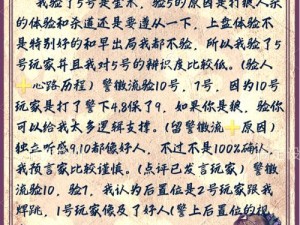 我验了5号是金水，验5的原因是打狼人杀
的体验和杀道还是要遵从一下，上盘体验不
是特别好的和早出局我都不验，所以我验了5
号玩家并且我对5号的辩识度比较低。（验人
心路历程）警徽流验10号，7号，因为10号
玩家是打了警下4，8保了9，如果你是狼，验你
可以给我太多逻辑支撑。（留警徽流 原因）
独立听感9，10都像好人，不过不是100%确认，
我预言家比较谨慎。（点评已发言玩家）警徽
流验10，验7，我认为后置位是2号玩家跟我
焊跳，1号玩家像及了好人（警上后置位的视